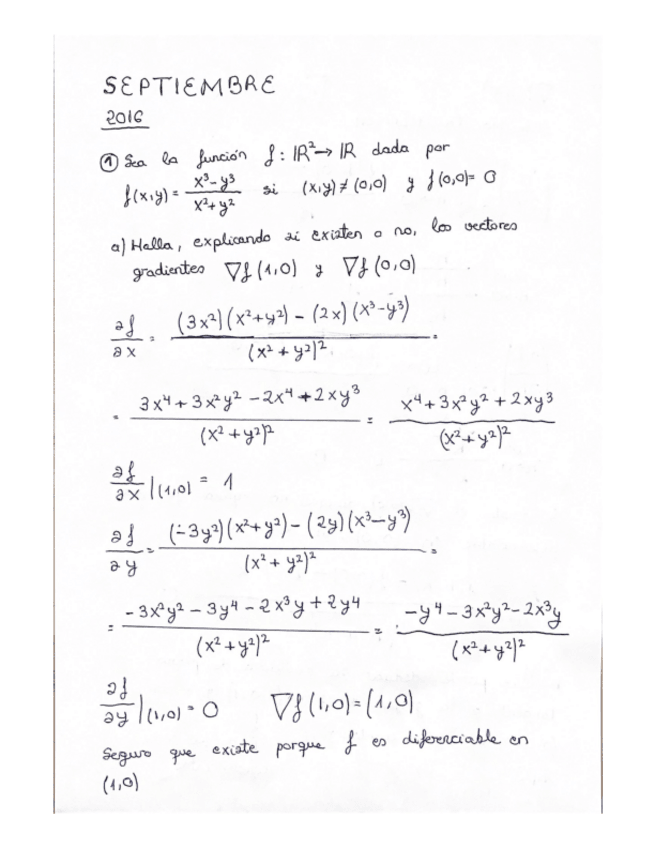 SEPTIEMBRE
2016
① Sea la función f: ℝ²→ ℝ dada por
f(x,y) = (x³-y³)/(x²+y²) si (x,y) ≠ (0,0) y f(0,0)= 0
a) Halla, explicando si existen o no, los vectores
gradientes ∇f (1,0) y ∇f (0,0)
∂f/∂x = ((3x²)(x²+y²) - (2x)(x³-y³))/(x²+y²)² =
= (3x⁴+3x²y²-2x⁴+2xy³)/(x²+y²)² = (x⁴+3x²y²+2xy³)/(x²+y²)²
∂f/∂x |(1,0) = 1
∂f/∂y = ((-3y²)(x²+y²)-(2y)(x³-y³))/(x²+y²)² =
= (-3x²y²-3y⁴-2x³y+2y⁴)/(x²+y²)² = (-y⁴-3x²y²-2x³y)/(x²+y²)²
∂f/∂y |(1,0) = 0 ∇f (1,0)=(1,0)
Seguro que existe porque f es diferenciable en
(1,0)